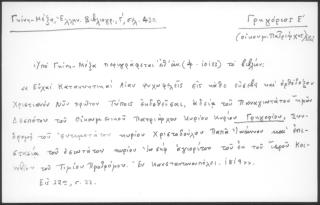 Γκίνη-Μέξα, Ἑλλην. Βιβλιογρ., τ΄, σελ. 420.
Γρηγόριος Ε΄
(οἰκουμ. Πατριάρχης)
Ὑπὸ Γκίνη-Μέξα περιγράφεται ὑπ' ἀρ. (4-10122) τὸ βιβλίον:
« Εὐχαὶ Κατανυκτικαὶ λίαν ψυχωφελεῖς εἰς κάθε εὐσεβῆ καὶ ὀρθόδοξον
Χριστιανὸν Νῦν πρῶτον Τύποις ἐκδοθεῖσαι, ἀδείᾳ τοῦ Παναγιωτάτου ἡμῶν
Δεσπότου τοῦ Οἰκουμενικοῦ Πατριάρχου Κυρίου Κυρίου Γρηγορίου, Συν-
δρομῇ τοῦ κυρίου Χριστοδούλου Παπᾶ Ἰωάννου καὶ ἐπι-
στασίᾳ τοῦ ὁσιωτάτου κυρίου Ἰωσὴφ ἁγιορίτου τοῦ ἐκ τοῦ Ἱεροῦ Κοι-
νοβίου τοῦ Τιμίου Προδρόμου. Ἐν Κωνσταντινουπόλει. 1819 ».
Εἰς 32ον, σ. 22.